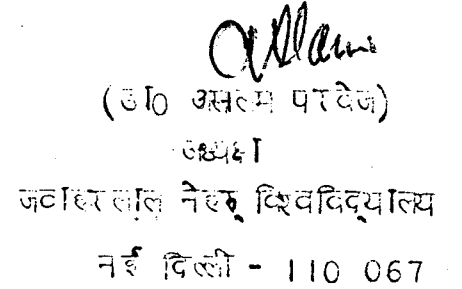 (डा० असलम परवेज)
अध्यक्ष
जवाहरलाल नेहरू विश्वविद्यालय
नई दिल्ली - 110 067